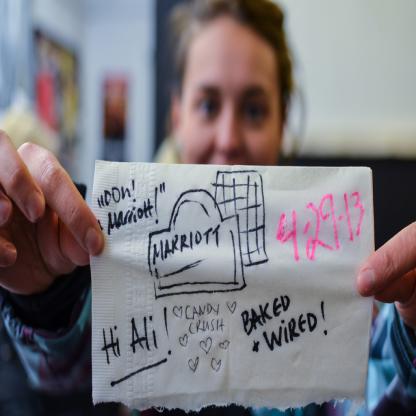 "OOh!
Marriott!"
MARRIOTT
4-29-13
Hi Ali!
CANDY
CRUSH
BAKED
+ WiRED!